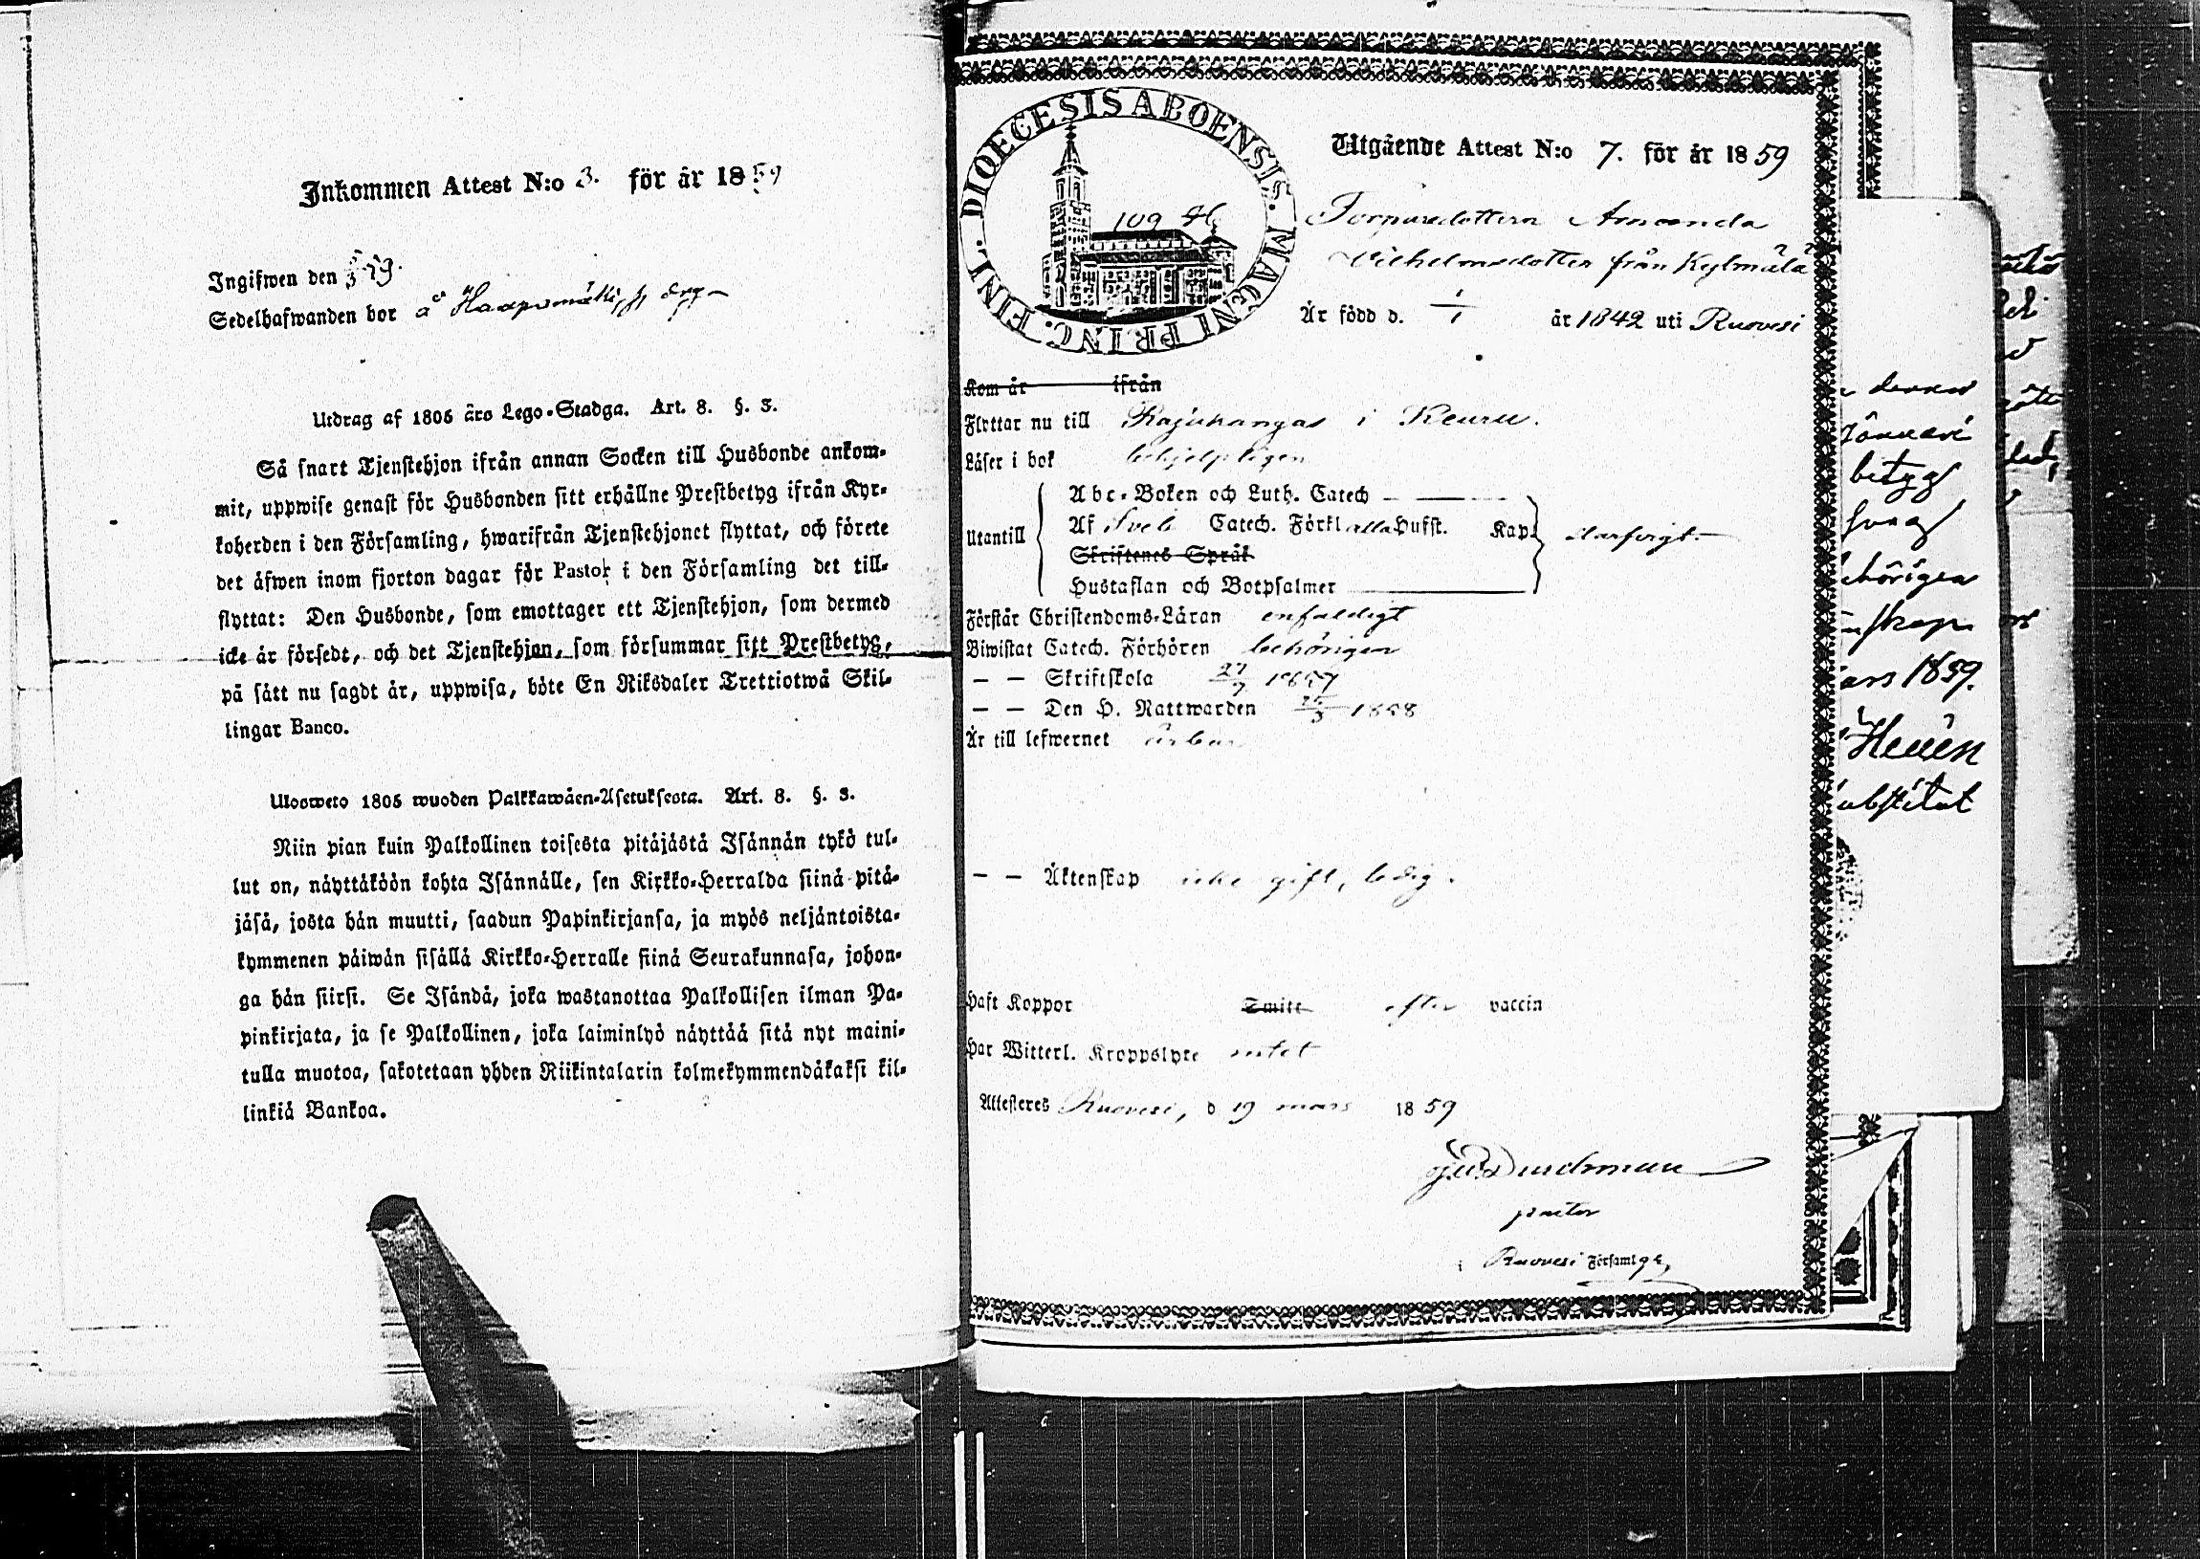 Inkommen Attest N:o 3. för år 1859
Ingifwen den
Sedelhafwanden bor å Haapamäki
Utdrag af 1805 års Lego-Stadga. Art. 8. §. 3.
Så snart Tjenstehjon ifrån annan Socken till Husbonde ankom-
mit, uppwise genast för Husbonden sitt erhållne Prestbetyg ifrån Kyr-
koherden i den Församling, hwarifrån Tjenstehjonet flyttat, och förete
det äfwen inom fjorton dagar för Pastor i den Församling det till-
flyttat: Den Husbonde, som emottager ett Tjenstehjon, som dermed
icke är försedt, och det Tjenstehjon, som försummar sitt Prestbetyg,
på sätt nu sagdt är, uppwisa, böte En Riksdaler Trettiotwå Skil-
lingar Banco.
Ulosweto 1805 wuoden Palkkawäen-Asetuksesta. Art. 8. §. 3.
Niin pian kuin Palkollinen toisesta pitäjästä Isännän tykö tul-
lut on, näyttäköön kohta Isännälle, sen Kirkko-Herralda siinä pitä-
jäsä, josta hän muutti, saadun Papinkirjansa, ja myös neljäntoista-
kymmenen päiwän sisällä Kirkko-Herralle siinä Seurakunnasa, johon-
ga hän siirsi. Se Isändä, joka wastanottaa Palkollisen ilman Pa-
pinkirjata, ja se Palkollinen, joka laiminlyö näyttää sitä nyt maini-
tulla muotoa, sakotetaan yhden Riikintalarin kolmekymmendäkaksi kil-
linkiä Bankoa.
DIOECESIS ABOENSIS. MAGNI PRINC. FINL.
109
Utgående Attest N:o 7. för år 1859
Torparedottern Amanda
Wilhelmsdotter från Kylmälä
Är född d. 1/1 år 1842 uti Ruovesi
Kom år ifrån
Flyttar nu till Kajukangas i Keuru.
Läser i bok behjelpligen
Utantill
Abc-Boken och Luth. Catech
Af Sveb Catech. Förkl alla Hufst. Kap.
Skriftenes Språk
Hustaflan och Botpsalmer
Förstår Christendoms-Läran enfaldigt
Biwistat Catech. Förhören behörigen
— — Skriftskola 27/7 1857
— — Den H. Nattwarden 1858
Är till lefwernet ärbar
— — Äktenskap icke gift, ledig.
Haft Koppor Smitt efter vaccin
Har Witterl. Kroppslyte intet
Attesteres Ruovesi, d 19 mars 1859
pastor
i Ruovesi Församlge,
denna
Januari
betyg
svag
ehörigen
nskap
ars 1859.
Heuén
ubstitut